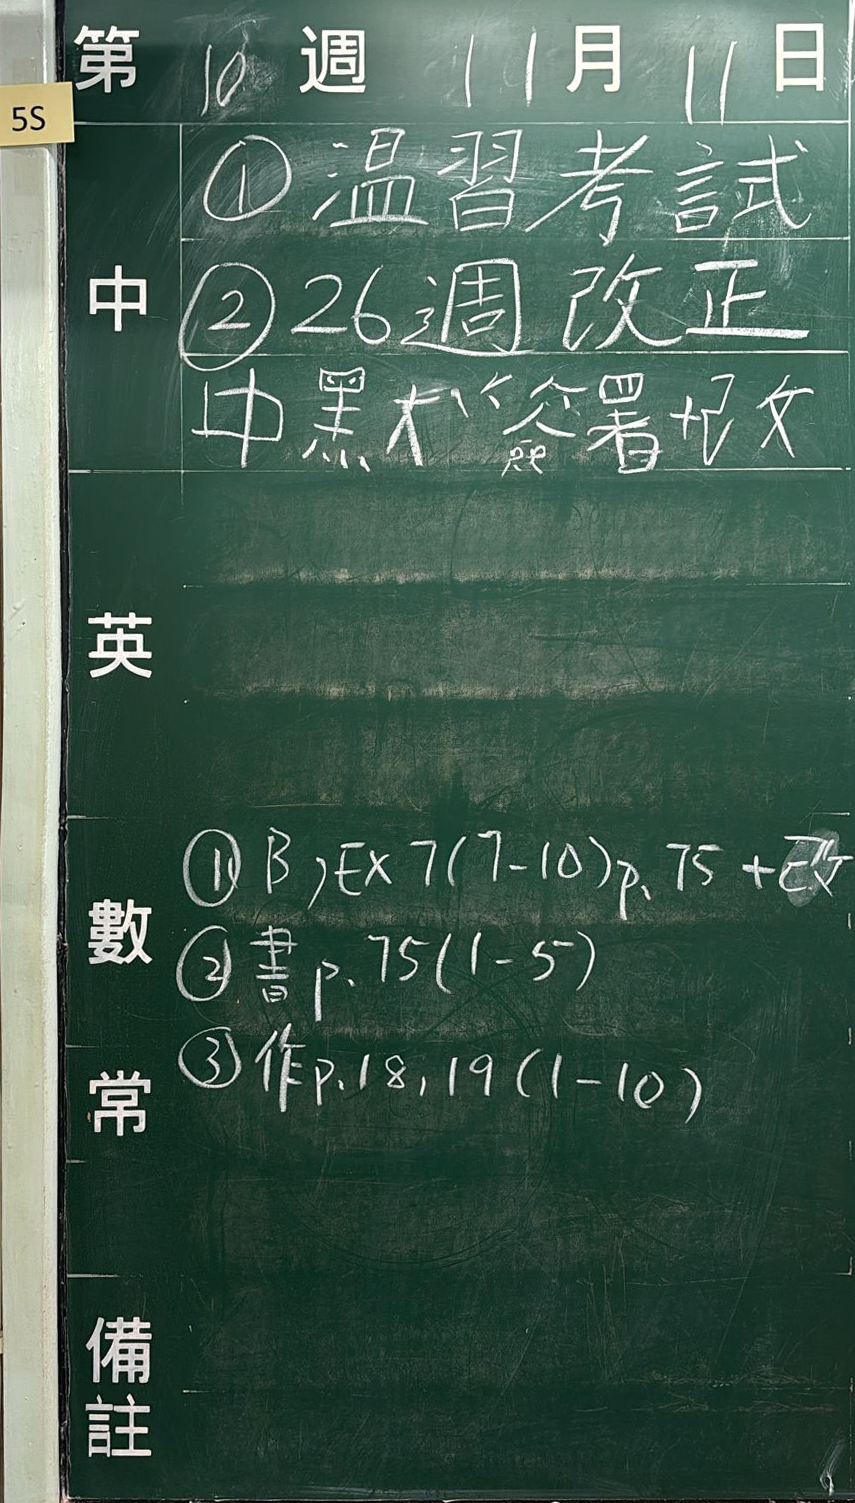 第 10 週 11 月 11 日
5S
中
① 温習考試
② 26週 改正
中黑 簽署 改
英
數
① B,Ex 7(7-10)p. 75 +改
② 書p. 75(1-5)
常
③ 作p.18,19(1-10)
備註